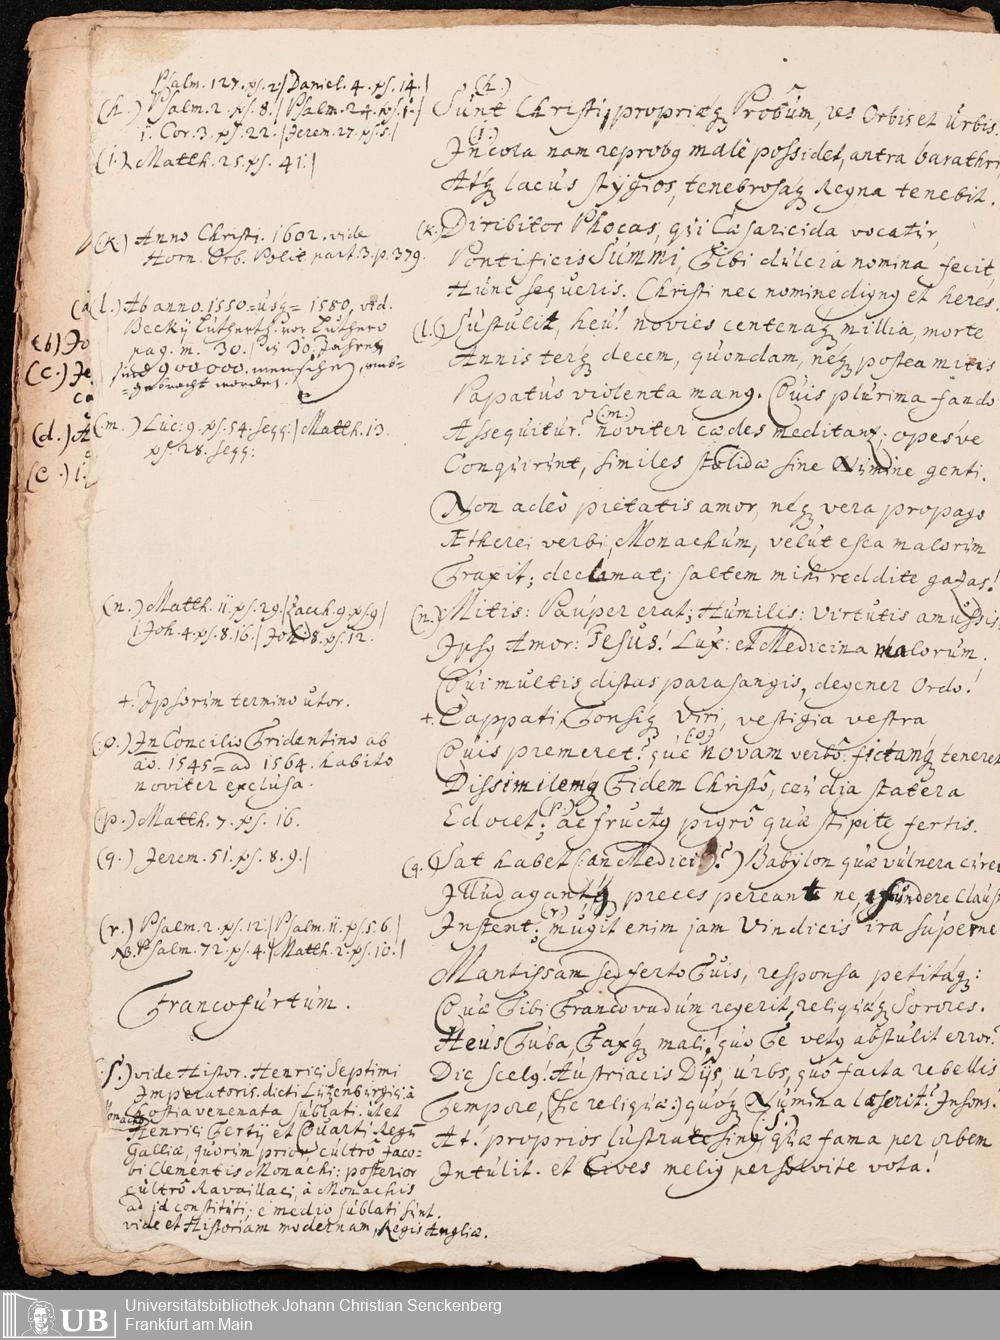 Psalm. 127. vs. 2 | Daniel. 4. vs. 14. |
(h.) Psalm. 2. vs. 8. | Psalm. 24. vs. 1. |
1. Cor. 3. vs. 22. | Jerem. 27. vs. 5. |
(i.) Matth. 25. vs. 41. |
(k.) Anno Christi. 1602. vide
Horn. Orb. Polit. part. 3. p. 379.
(l.) Ab anno. 1550. usq; 1580, vid.
Beckij Lutherth. vor Luthero
pag. m. 30. In 30. Jahren
sind 900000. menschen, umb-
gebracht worden.
(m.) Luc. 9. vs. 54. seqq. | Matth. 13.
vs. 28. seqq:
(n.) Matth. 11. vs. 29. | Zach. 9. vs. 9 |
1 Joh. 4. vs. 8. 16. | Joh. 8. vs. 12.
+. Ipsorum termino utor.
(o.) In Concilio Tridentino ab
ao. 1545 = ad 1564. habito
noviter exclusa.
(p.) Matth. 7. vs. 16.
(q.) Jerem. 51. vs. 8. 9. |
(r.) Psalm. 2. vs. 12. | Psalm. 11. vs. 5. 6. |
NB. Psalm. 72. vs. 4. | Matth. 2. vs. 16. |
Francofurtum.
(s.) vide Histor. Henrici Septimi
Imperatoris. dicti Lützenburgici; à
Monacho Hostia venenata sublati. ut et
Henrici Tertij et Quarti Regum
Galliæ, quorum prior cultro Jaco-
bi Clementis Monachi: posterior
cultro Ravaillaci, à Monachis
ad id constituti; e medio sublati sint.
vide et Historiam modernam, Regis Angliæ.
(h.)
Sunt Christi, propriæq; Probum, res Orbis et Urbis.
(i.)
Incola nam reprobus malè possidet, antra barathri
Atq; lacus stygios, tenebrosaq; Regna tenebit.
(k.) Diribitor Phocas, qui Cæsaricida vocatur,
Pontificis Summi, Tibi dulcia nomina fecit,
Hunc sequeris. Christi nec nomine dignus et heres
(l.) Sustulit, heu! novies centenaq; millia, morte
Annis terq; decem, quondam, neq; postea mitis
Papatus violenta manus. Quis plurima fando
(m.)
Assequitur? noviter cædes meditant; opesve
Conquirunt, similes stolidæ sine Numine genti.
Non adeò pietatis amor, neq; vera propago
Ætherei verbi, Monachum, velut esca malorum
Traxit; declamat; saltem mihi reddite gazas!
(n.) Mitis: Pauper erat; Humilis: virtutis amussis:
Ipsus Amor: Jesus! Lux: et Medicina malorum,
Qui multis distas parasangis, degener Ordo!
+. Cappati, Tonsiq; Viri, vestigia vestra
(o.)
Quis premeret? quæ novam verto: fictamq; teneret
Dissimilemq; Fidem Christo, ceu dia statera
(p.)
Edocet; ac fructus pigrô quæ stipite fertis.
(q.) Sat habet (an Medici?) Babylon quæ vulnera curet
Illud agant preces pereant ne, fundere Claustris
(r.)
Instent; mugit enim jam Vindicis ira supernè
Mantissam sed ferto Tuis, responsa petitaq;:
Quæ Tibi Francovadum regerit, reliquæq; Sorores.
Heus Tuba, Faxq; mali! quò Te vetus abstulit error?
Dic scelus! Austriacis Dijs, urbs, quô facta rebellis
Tempore, (sic reliquæ:) quoq; Numina læserit? Insons.
(s.)
At. proprios lustrate sinus, quæ fama per orbem
Intulit. et Cives melius persolvite vota!
(b) Jo
(c.) Je
(d.) A
(e.)
Universitätsbibliothek Johann Christian Senckenberg
Frankfurt am Main
UB